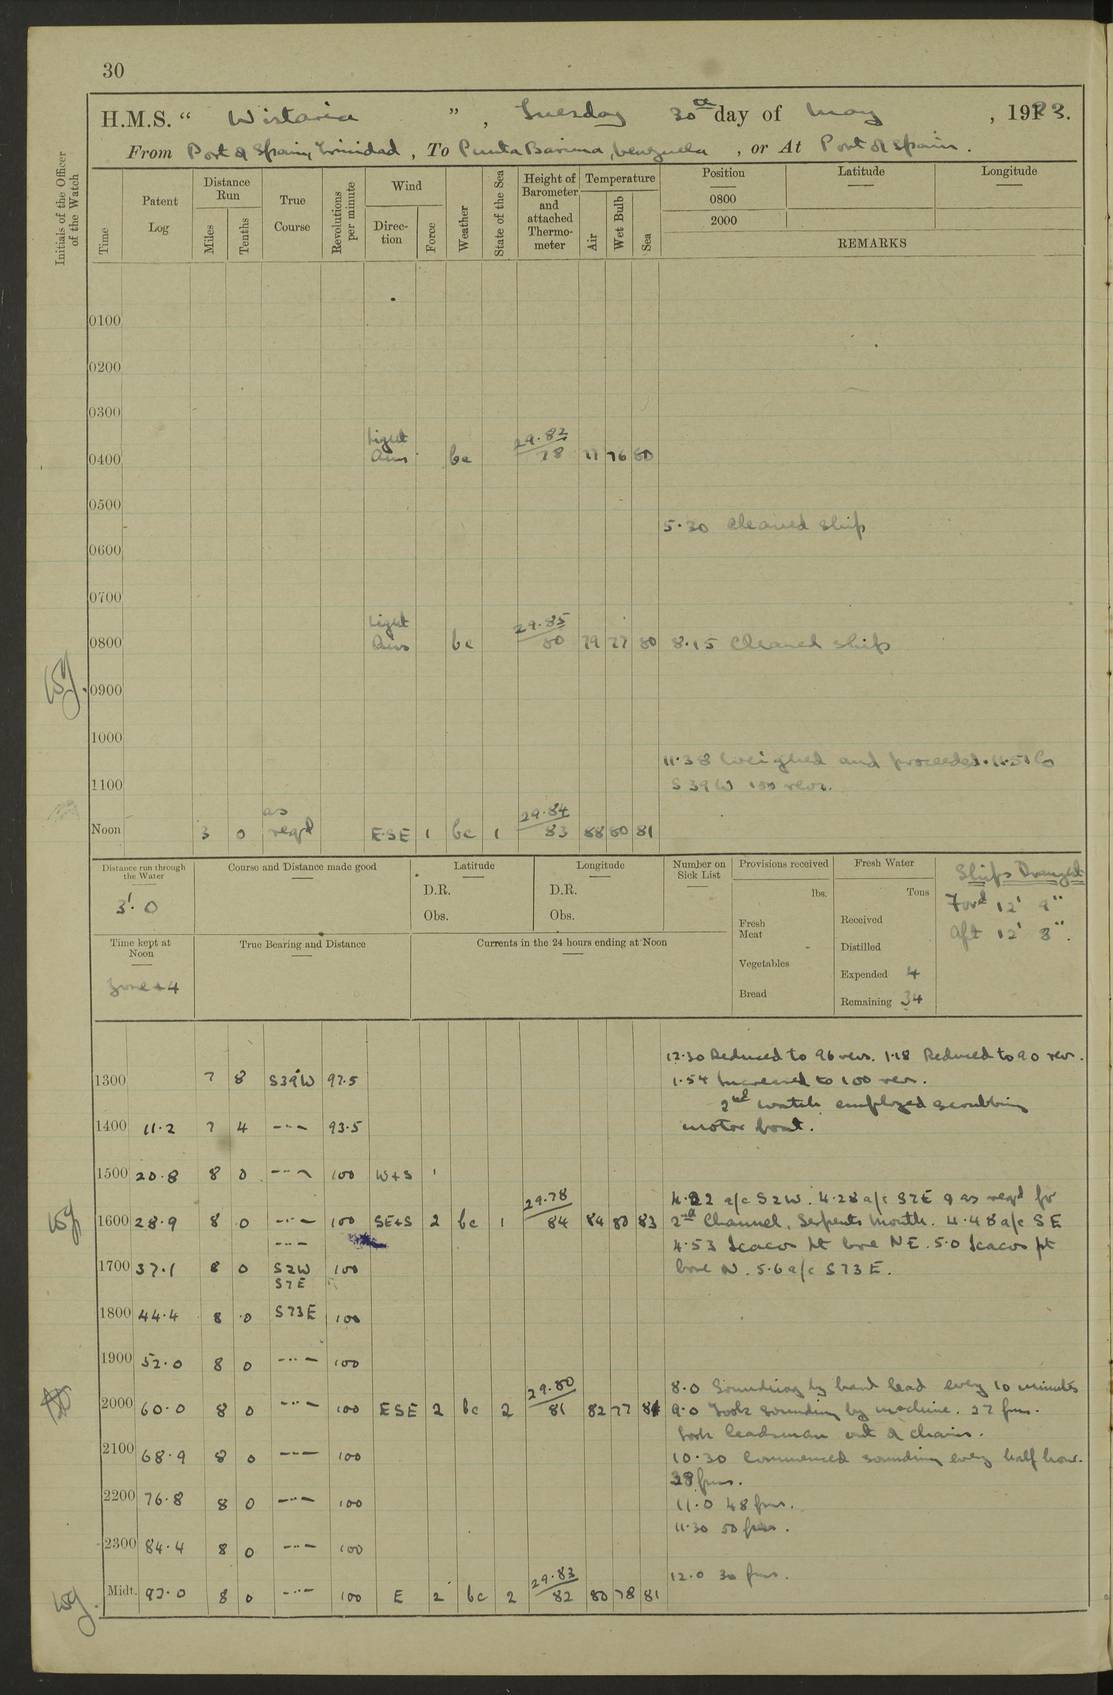 30
H.M.S. “ Wistaria ” , Tuesday 30th day of May , 1923.
From Port of Spain, Trinidad , To Punta Barima, Venezuela , or At Port of Spain .
Initials of the Officer of the Watch
Time
Patent Log
Distance Run
Miles
Tenths
True Course
Revolutions per minute
Wind
Direction
Force
Weather
State of the Sea
Height of Barometer and attached Thermometer
Temperature
Air
Wet Bulb
Sea
Position
0800
2000
Latitude
Longitude
REMARKS
0100
0200
0300
0400 Light Airs bc 29.82 78 77 76 80
0500
5.30 Cleaned ship
0600
0700
0800 Light Airs bc 29.85 80 79 77 80 8.15 Cleaned ship
0900
1000
11.38 Weighed and proceeded. 11.51 Co
1100 S39W 100 revs.
Noon 3 0 as reqd ESE 1 bc 1 29.84 83 88 80 81
Distance run through the Water
3'.0
Course and Distance made good
Latitude
D.R.
Obs.
Longitude
D.R.
Obs.
Number on Sick List
Provisions received
lbs.
Fresh Meat
Vegetables
Bread
Fresh Water
Tons
Received
Distilled
Expended 4
Remaining 34
Ships Draught
Ford 12' 9"
Aft 12' 8".
Time kept at Noon
Zone + 4
True Bearing and Distance
Currents in the 24 hours ending at Noon
12.30 Reduced to 96 revs. 1.18 Reduced to 90 rev.
1300 7 8 S39W 97.5 1.54 Increased to 100 rev.
2nd watch employed scrubbing
1400 11.2 7 4 -"- 93.5 motor boat.
1500 20.8 8 0 -"- 100 W+S 1
4.22 a/c S2W. 4.28 a/c S7E & as reqd for
1600 28.9 8 0 -"- 100 SE+S 2 bc 1 29.78 84 84 80 83 2nd Channel, Serpents Mouth. 4.48 a/c SE
-"- 4.53 Icacos Pt bore NE. 5.0 Icacos pt
1700 37.1 8 0 S2W S7E 100 bore N. 5.6 a/c S73E.
1800 44.4 8 0 S73E 100
1900 52.0 8 0 -"- 100
8.0 Sounding by hand lead every 10 minutes
2000 60.0 8 0 -"- 100 ESE 2 bc 2 29.80 81 82 77 81 9.0 Took sounding by machine. 27 fms.
Took leadsman out of chains.
2100 68.9 8 0 -"- 100 10.30 Commenced sounding every half hour.
38 fms.
2200 76.8 8 0 -"- 100 11.0 48 fms.
11.30 50 fms.
2300 84.4 8 0 -"- 100
12.0 30 fms.
Midt. 92.0 8 0 -"- 100 E 2 bc 2 29.83 82 80 78 81